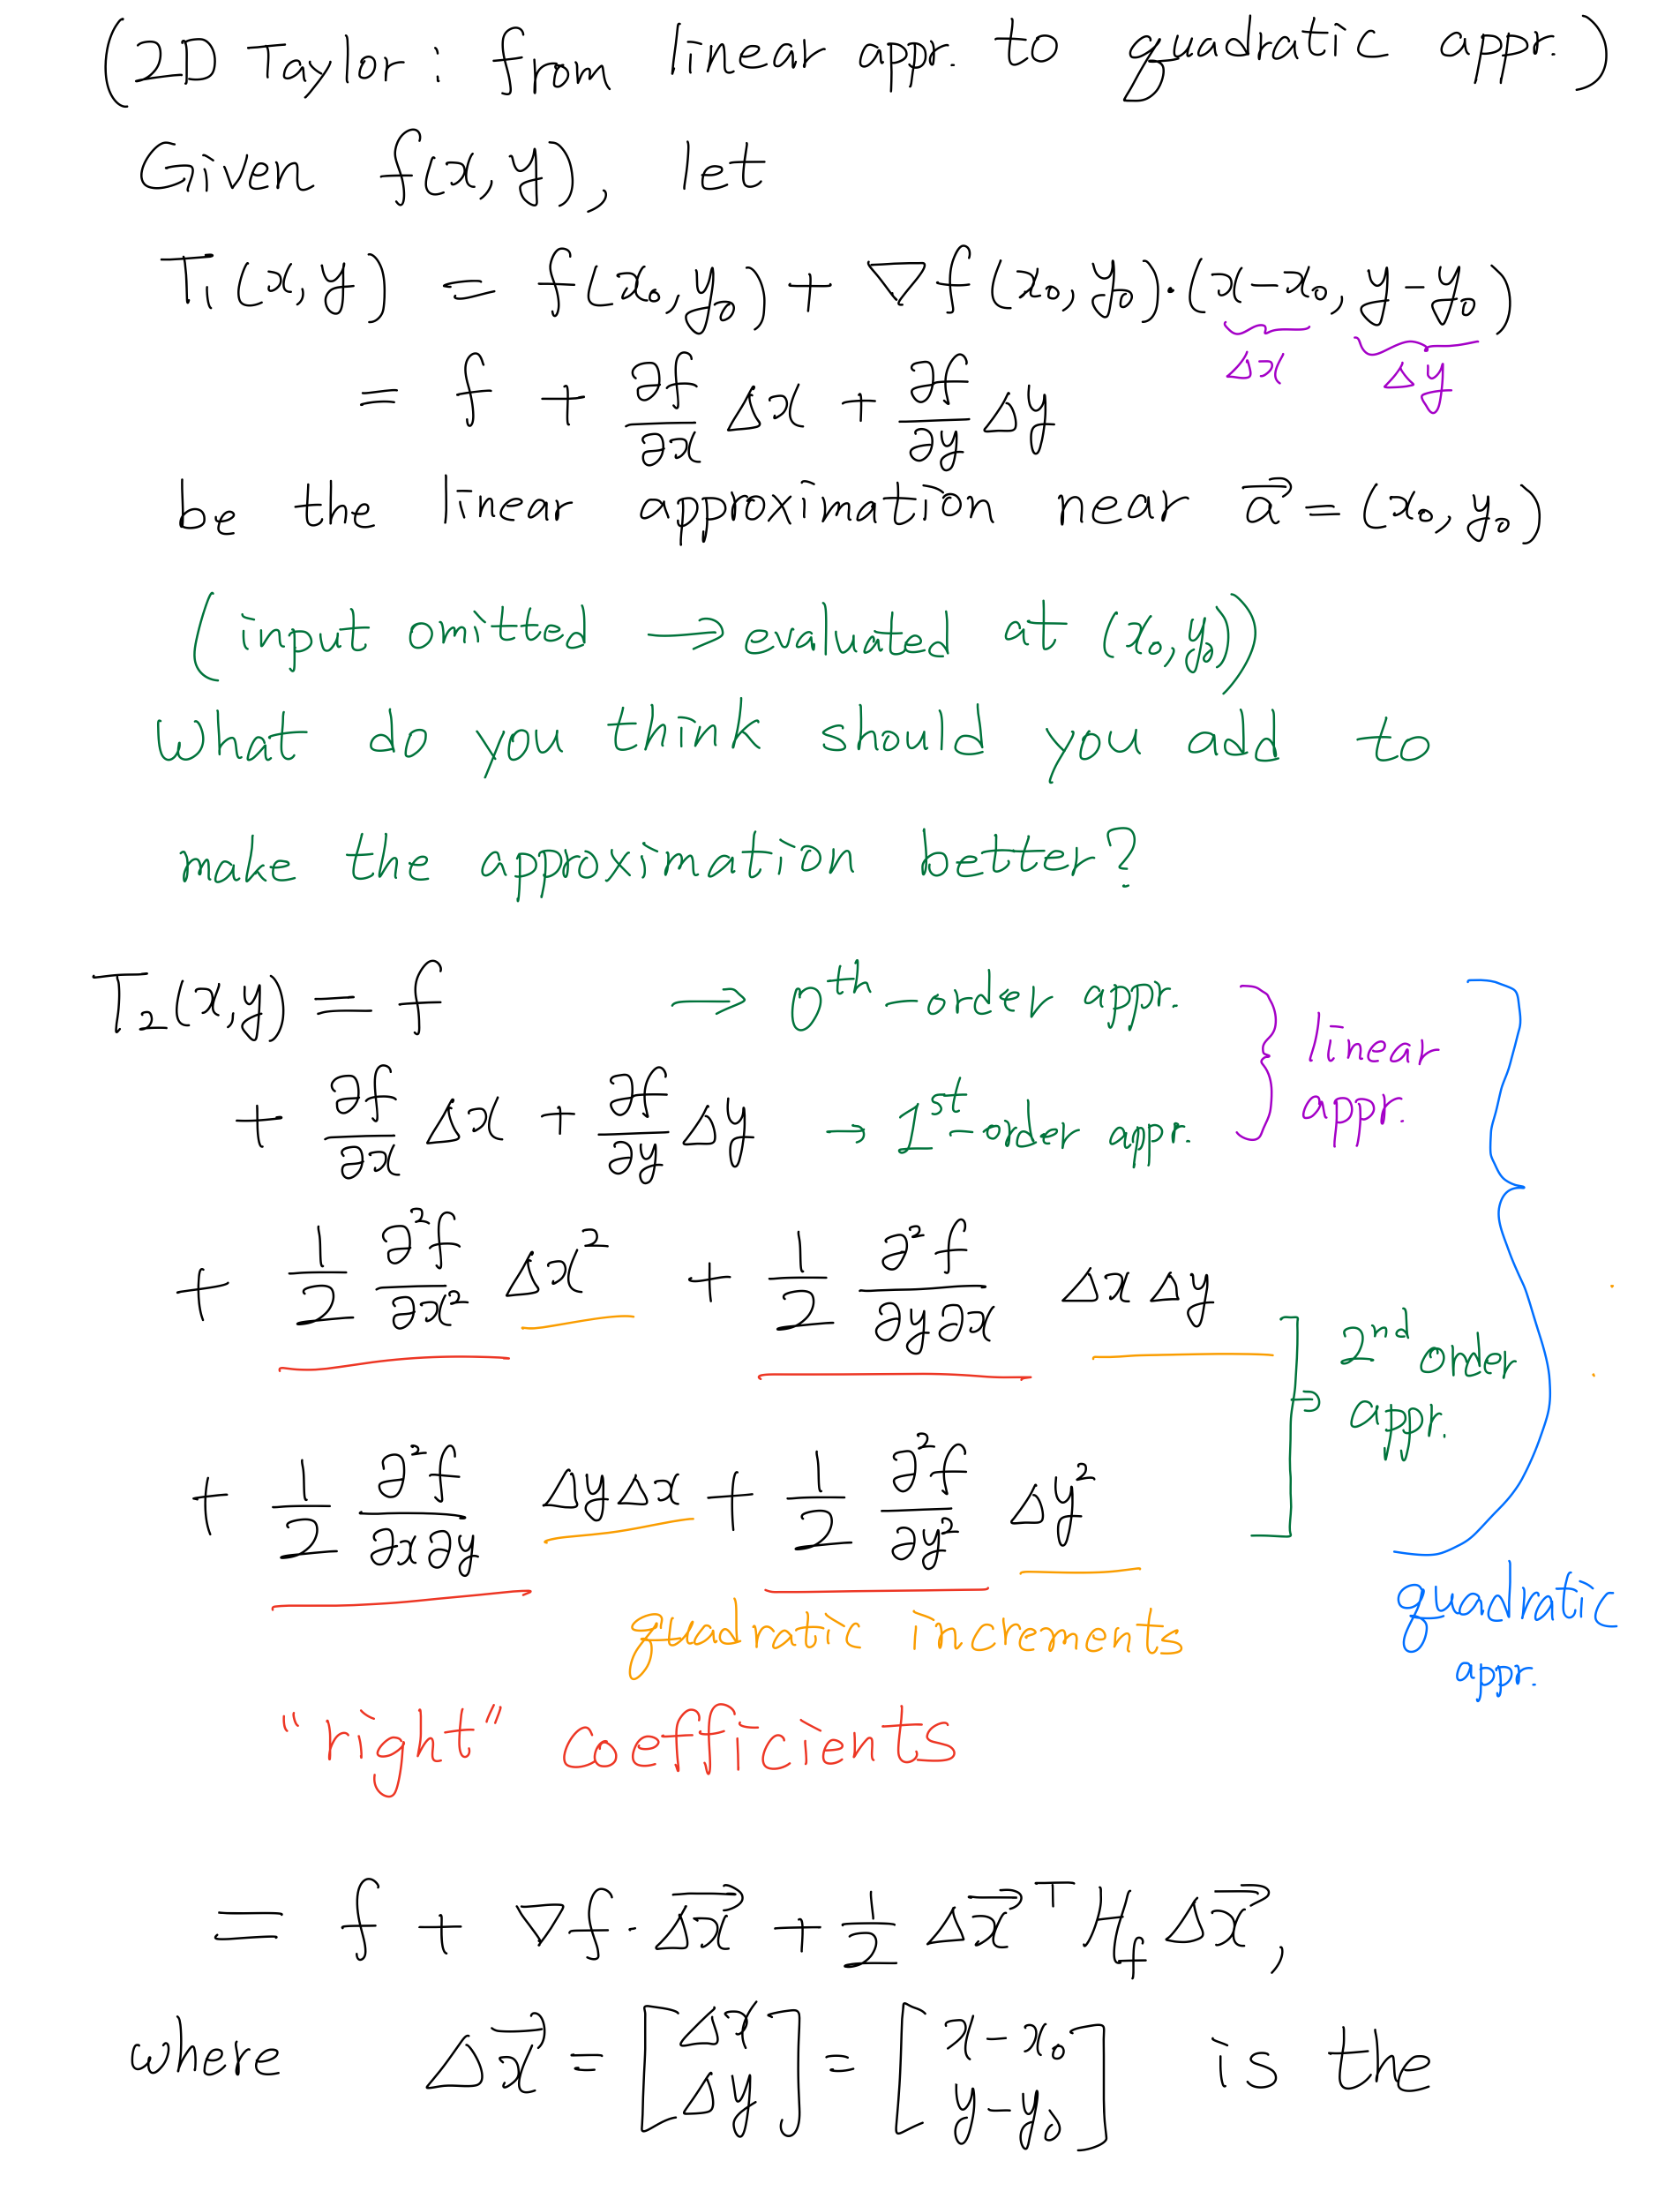 (2D Taylor: from linear appr. to quadratic appr.)
Given f(x,y), let
T₁(x,y) = f(x₀,y₀) + ∇f(x₀,y₀)·(x-x₀, y-y₀)
Δx Δy
= f + ∂f/∂x Δx + ∂f/∂y Δy
be the linear approximation near a⃗ = (x₀, y₀)
(input omitted → evaluated at (x₀,y₀))
What do you think should you add to
make the approximation better?
T₂(x,y) = f → 0th-order appr.
+ ∂f/∂x Δx + ∂f/∂y Δy → 1st-order appr.
linear
appr.
+ 1/2 ∂²f/∂x² Δx² + 1/2 ∂²f/∂y∂x ΔxΔy
+ 1/2 ∂²f/∂x∂y ΔyΔx + 1/2 ∂²f/∂y² Δy²
→ 2nd order
appr.
quadratic
appr.
quadratic increments
"right" coefficients
= f + ∇f · Δx⃗ + 1/2 Δx⃗ᵀ H_f Δx⃗,
where Δx⃗ = [Δx Δy] = [x-x₀ y-y₀] is the